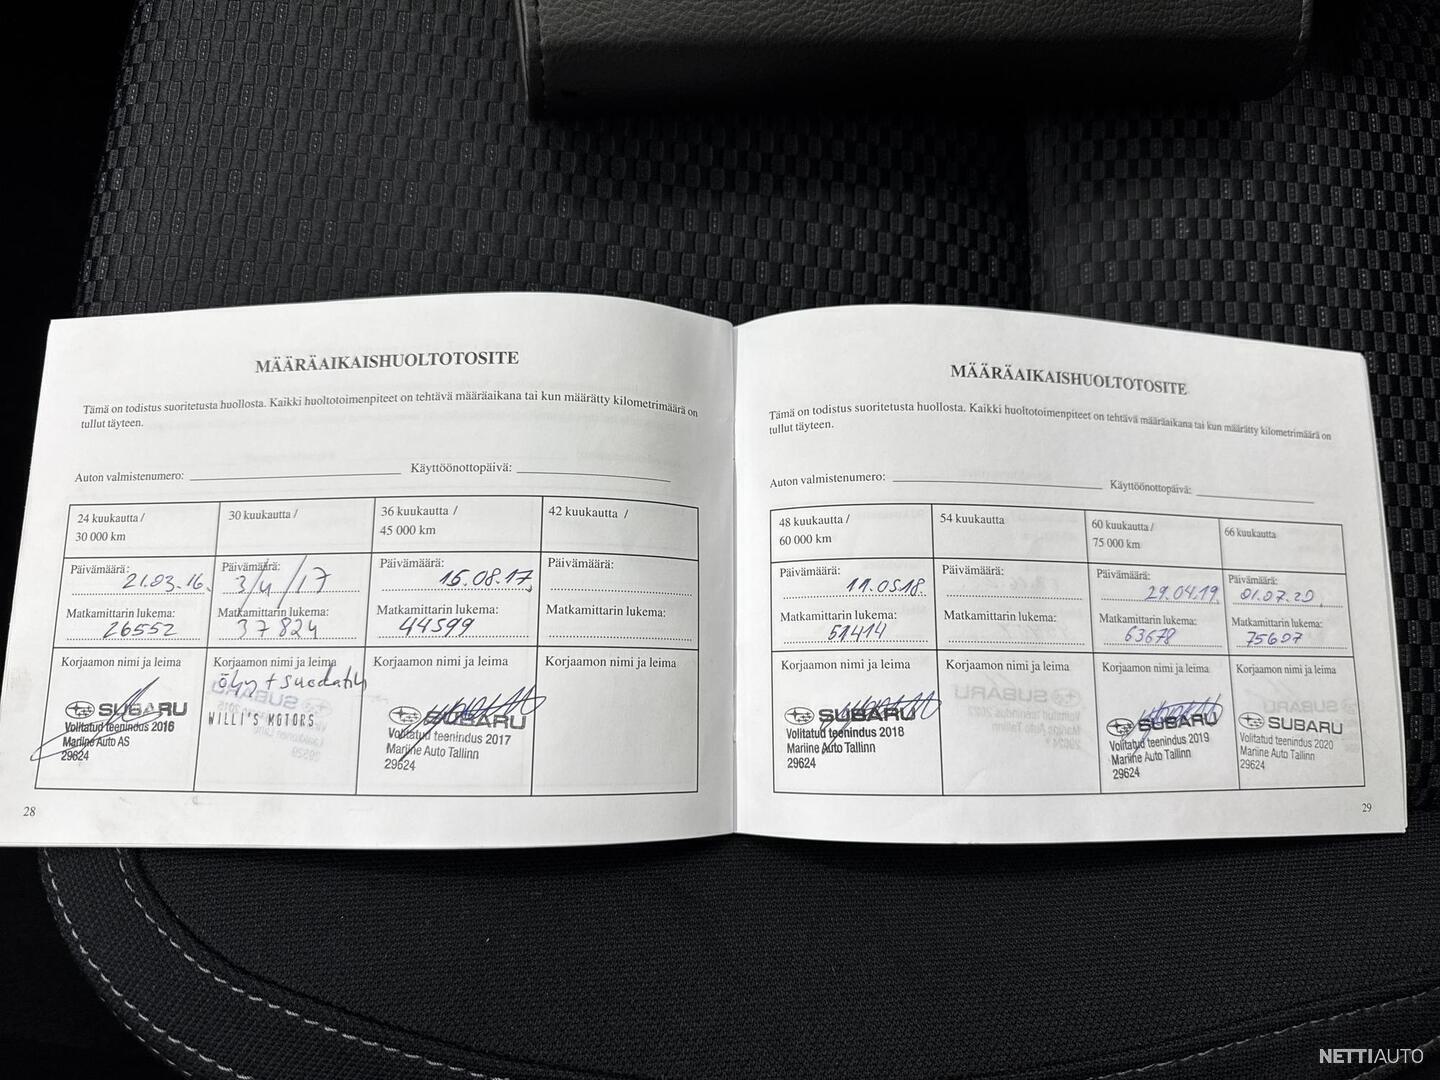 MÄÄRÄAIKAISHUOLTOTOSITE
Tämä on todistus suoritetusta huollosta. Kaikki huoltotoimenpiteet on tehtävä määräaikana tai kun määrätty kilometrimäärä on
tullut täyteen.
Auton valmistenumero: Käyttöönottopäivä:
24 kuukautta /
30 000 km
Päivämäärä:
21.03.16.
Matkamittarin lukema:
26552
Korjaamon nimi ja leima
SUBARU
Volitatud teenindus 2016
Mariine Auto AS
29624
30 kuukautta /
Päivämäärä:
3/4/17
Matkamittarin lukema:
37824
Korjaamon nimi ja leima
öljy + suodatin
WILLI'S MOTORS
36 kuukautta /
45 000 km
Päivämäärä:
15.08.17
Matkamittarin lukema:
44599
Korjaamon nimi ja leima
SUBARU
Volitatud teenindus 2017
Mariine Auto Tallinn
29624
42 kuukautta /
Päivämäärä:
Matkamittarin lukema:
Korjaamon nimi ja leima
28
MÄÄRÄAIKAISHUOLTOTOSITE
Tämä on todistus suoritetusta huollosta. Kaikki huoltotoimenpiteet on tehtävä määräaikana tai kun määrätty kilometrimäärä on
tullut täyteen.
Auton valmistenumero: Käyttöönottopäivä:
48 kuukautta /
60 000 km
Päivämäärä:
11.05.18.
Matkamittarin lukema:
51414
Korjaamon nimi ja leima
SUBARU
Volitatud teenindus 2018
Mariine Auto Tallinn
29624
54 kuukautta
Päivämäärä:
Matkamittarin lukema:
Korjaamon nimi ja leima
60 kuukautta /
75 000 km
Päivämäärä:
29.04.19.
Matkamittarin lukema:
63678
Korjaamon nimi ja leima
SUBARU
Volitatud teenindus 2019
Mariine Auto Tallinn
29624
66 kuukautta
Päivämäärä:
01.07.20.
Matkamittarin lukema:
75607
Korjaamon nimi ja leima
SUBARU
Volitatud teenindus 2020
Mariine Auto Tallinn
29624
29
NETTIAUTO